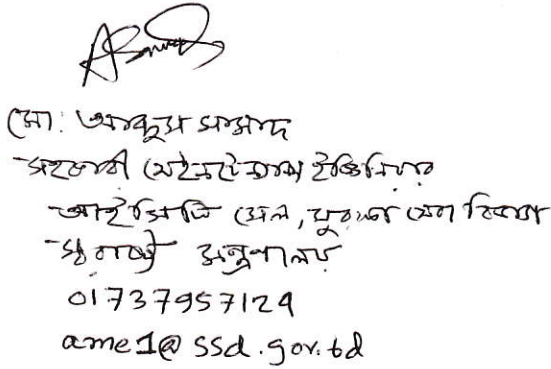 মো: আব্দুস সামাদ
সহকারী মেইনটেন্যান্স ইঞ্জিনিয়ার
আইসিটি সেল, সুরক্ষা সেবা বিভাগ
স্বরাষ্ট্র মন্ত্রণালয়
01737957129
ame1@ssd.gov.bd